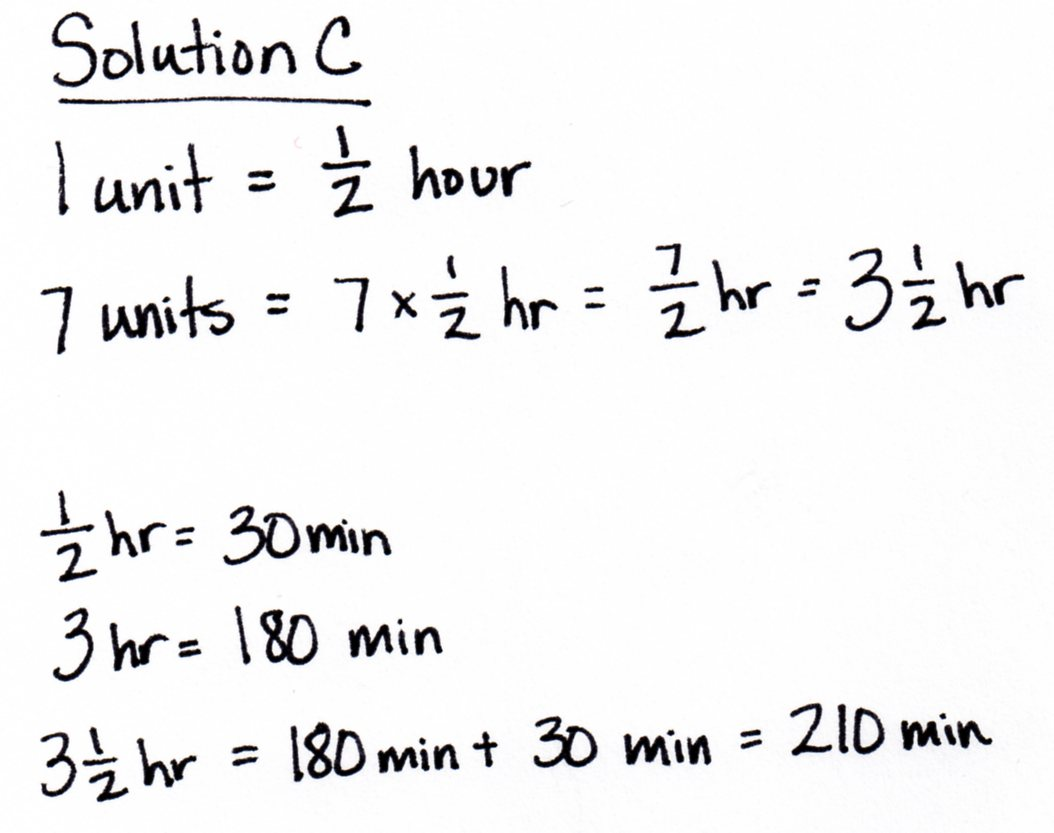 Solution C
1 unit = 1/2 hour
7 units = 7 × 1/2 hr = 7/2 hr = 3 1/2 hr
1/2 hr = 30 min
3 hr = 180 min
3 1/2 hr = 180 min + 30 min = 210 min